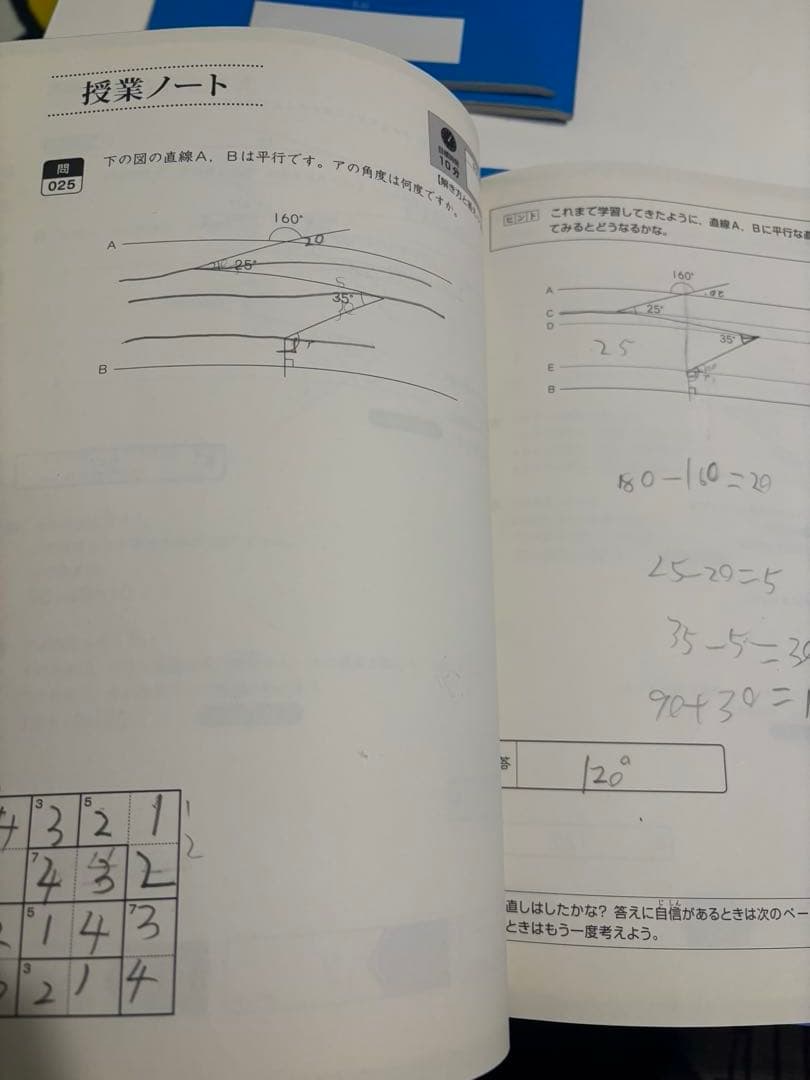 授業ノート
問
025
下の図の直線A，Bは平行です。アの角度は何度ですか。
10分
160°
A
20
25°
5
35°
B
ヒント これまで学習してきたように，直線A，Bに平行な直
てみるとどうなるかな。
160°
A
C
25°
D
35°
25
E
B
180-160=20
25-20=5
35-5=30
90+30=1
答
120°
4 3 3 5 2 1 1
2
7 4 3 2
5 1 4 7 3
3 2 1 4
直しはしたかな？ 答えに自信があるときは次のペー
ときはもう一度考えよう。